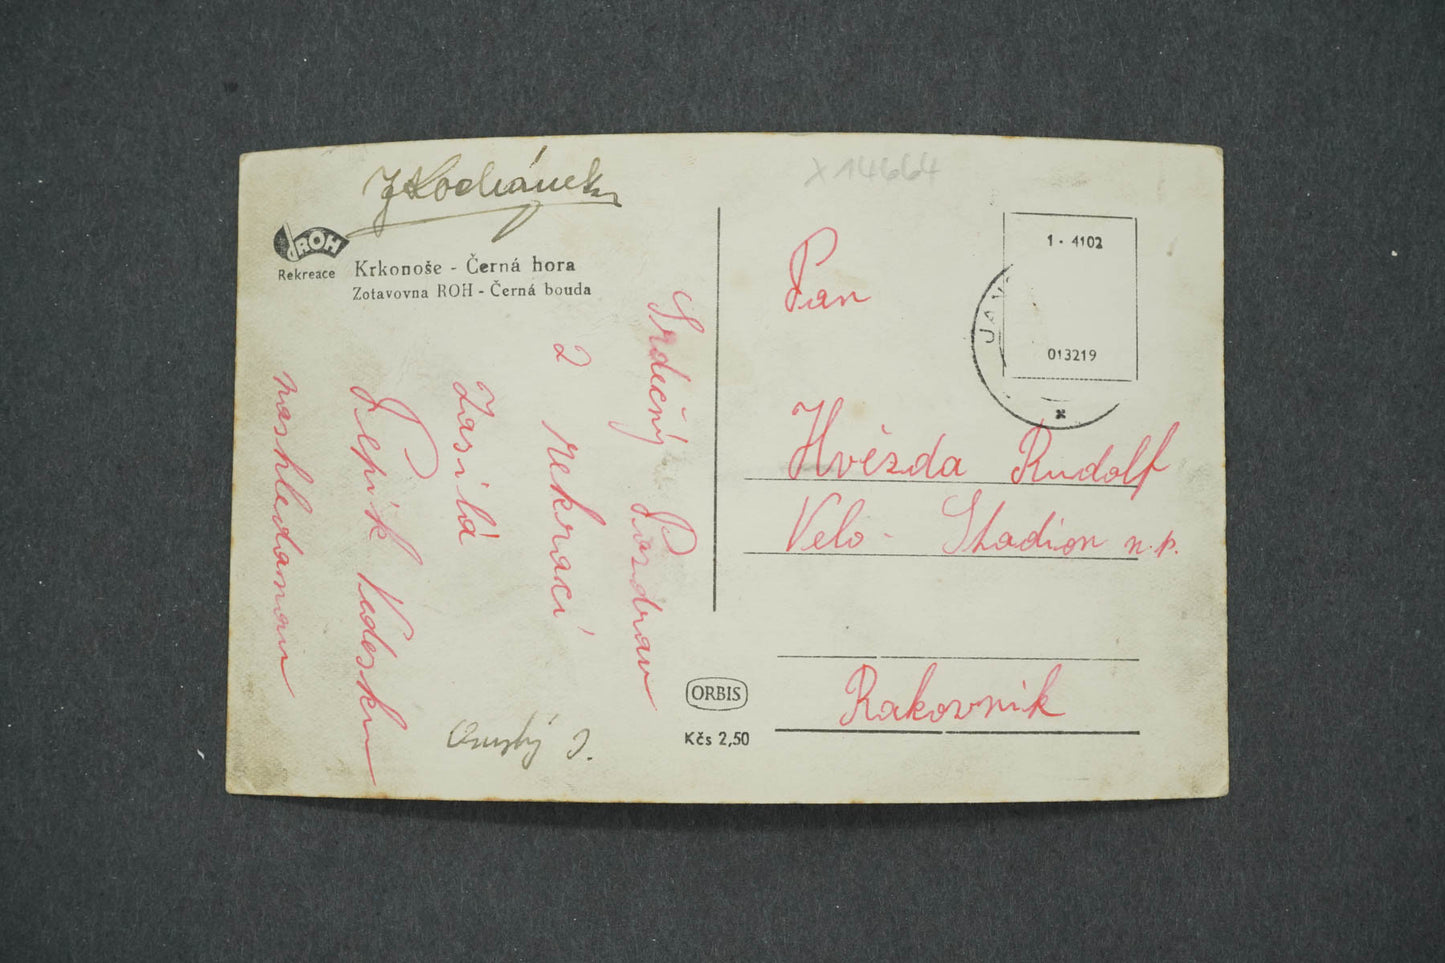 X14664
ROH
Rekreace
Krkonoše - Černá hora
Zotavovna ROH - Černá bouda
Srdečný Pozdrav
z rekrací
Zasílá
Pepík
nashledanou
J.
ORBIS
Kčs 2,50
1 · 4102
013219
JAN
Pan
Hvězda Rudolf
Velo - Stadion n.p.
Rakovník